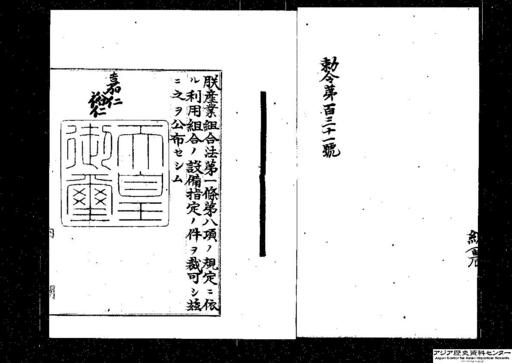 勅令第百三十一號
朕産業組合法第一條第八項ノ規定ニ依
ル利用組合ノ設備指定ノ件ヲ裁可シ茲
ニ之ヲ公布セシム
嘉仁
裕仁
天皇
御璽
内閣
アジア歴史資料センター
Japan Center for Asian Historical Records